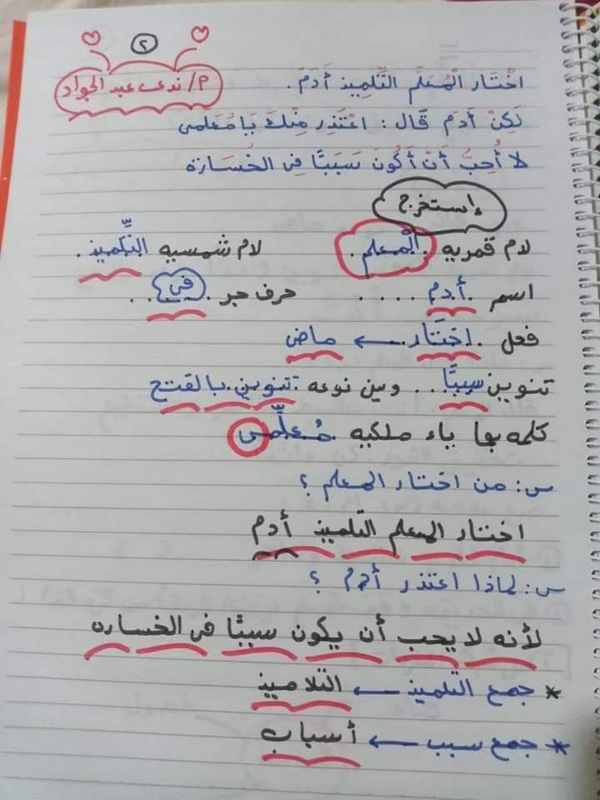 ٢
م/ ندى عبد الجواد
اخْتَار الْمُعَلِّم التِّلْمِيذ أَدَمَ.
لَكِنْ أدَمَ قَال: اعْتَذِر مِنْكَ يَا مُعَلِّمى
لا أُحِبُّ أَنْ أَكُونَ سَبَبًا فِى الْخَسَارَة
إستخرج
لام قمريه . الْمعلم . لام شمسيه التِّلميذ .
اسم . أدم . . . . . حرف جر . فى . . .
فعل . اختَار . ← ماض
تنوين سببًا . . وبين نوعه : تنوين بالفتح
كلمه بها ياء ملكيه . مُعلِّمى
س: من اختار المعلم ؟
اختار المعلم التلميذ أدم
س: لماذا اعتذر أدم ؟
لأنه لا يحب أن يكون سببًا فى الخساره
* جمع التلميذ ← التلاميذ
* جمع سبب ← أسباب